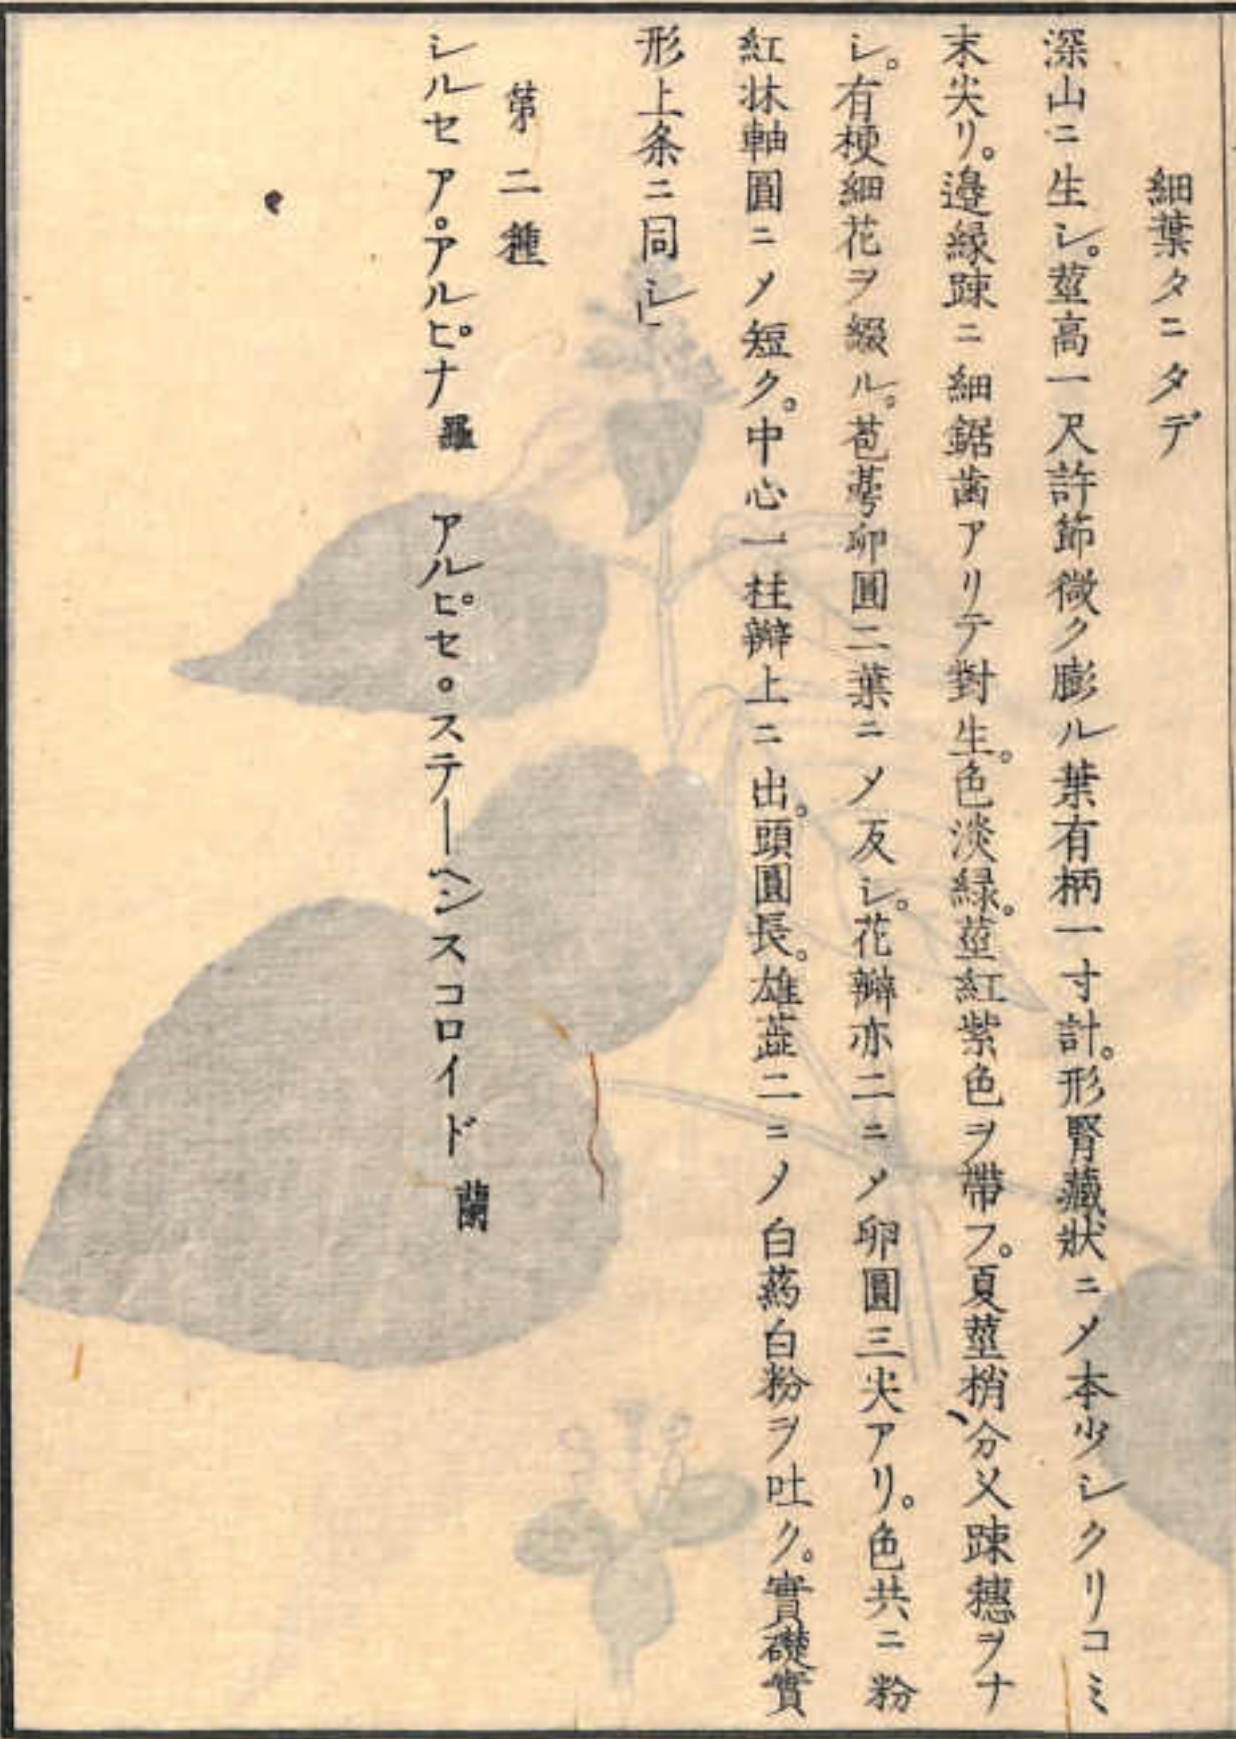 細葉タニタデ
深山ニ生シ。莖高一尺許節微ク膨ル葉有柄一寸計。形腎藏狀ニメ本少シクリコミ
末尖リ。邉縁踈ニ細鋸齒アリテ對生。色淡緑。莖紅紫色ヲ帶フ。夏莖梢、分乂踈穗ヲナ
シ。有梗細花ヲ綴ル。苞萼卵圓二葉ニメ反シ。花瓣亦二ニメ卵圓三尖アリ。色共ニ粉
紅牀軸圓ニメ短ク。中心一柱瓣上ニ出。頭圓長。雄蕋二ニメ白葯白粉ヲ吐ク。實礎實
形上条ニ同シ
第二種
シルセア。アルピナ 羅 アルピセ。ステーヘンスコロイド 蘭